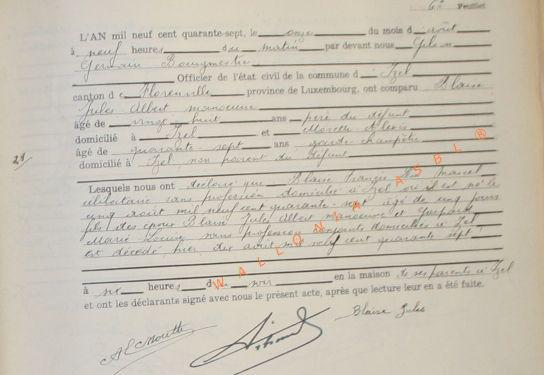 62 Feuillet
L'AN mil neuf cent quarante-sept, le onze du mois d'août
à neuf heures du matin par devant nous
Germain
Officier de l'état civil de la commune d'Izel
canton de Florenville province de Luxembourg, ont comparu Blaise
Jules Albert manoeuvre
âgé de vingt huit ans père du défunt
domicilié à Izel et Alexis
âgé de quarante-sept ans garde champêtre
domicilié à Izel non parent du défunt
21
Lesquels nous ont déclaré que Blaise Marcel
célibataire, sans profession domicilié à Izel où il est né le
cinq août mil neuf cent quarante-sept âgé de cinq jours
fils des époux Blaise Jules Albert manoeuvre et
Marie sans profession domiciliés à Izel
est décédé hier dix août mil neuf cent quarante sept
WALLONIA ASBL ®
à six heures du soir en la maison de ses parents à Izel
et ont les déclarants signé avec nous le présent acte, après que lecture leur en a été faite.
Blaise Jules